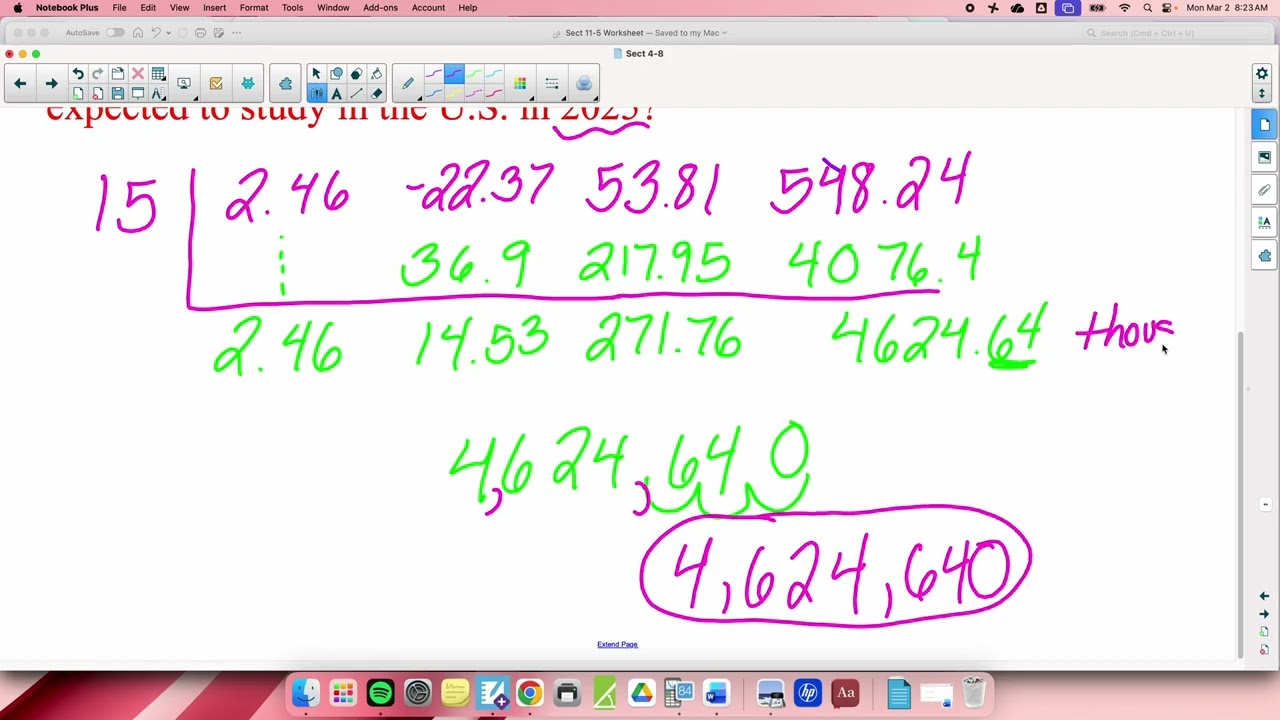 Notebook Plus File Edit View Insert Format Tools Window Add-ons Account Help Mon Mar 2 8:23 AM
AutoSave Sect 11-5 Worksheet — Saved to my Mac Search (Cmd + Ctrl + U)
Sect 4-8
expected to study in the U.S. in 2025?
15 2.46 -22.37 53.81 548.24
36.9 217.95 4076.4
2.46 14.53 271.76 4624.64 thous
4,624,640
4,624,640
Extend Page
84
hp
Aa